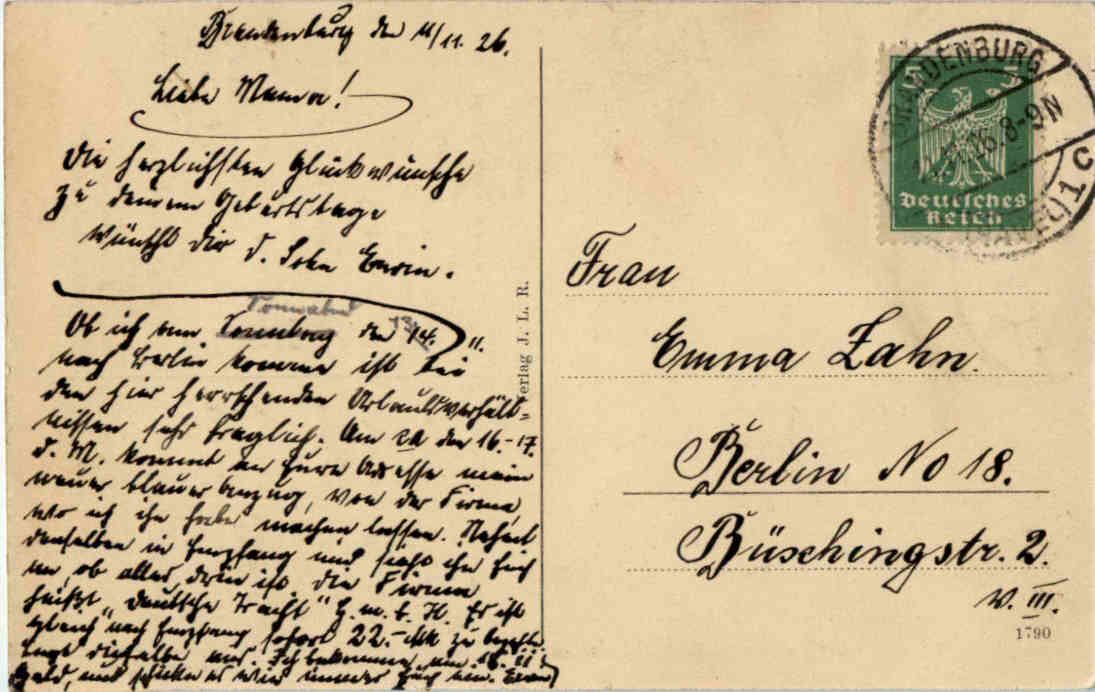 Brandenburg den 11/11. 26.
Liebe Mama!
Die herzlichsten Glückwünsche
zu deinem Geburtstage
wünscht dir d. Sohn Erwin.
Sonnabend
Ob ich am Sonntag den 13/14. 11.
nach Berlin komme ist bei
den hier herrschenden Urlaubsverhält=
nissen sehr fraglich. Am ca den 16.-17.
d. M. kommt an Eure Adresse mein
neuer blauer Anzug, von der Firma,
wo ich ihn habe machen lassen. Nehmt
denselben in Empfang und seht ihn Euch
an, ob alles drin ist. Die Firma
heißt "Deutsche Tracht" G. m. b. H. Er ist
gleich nach Empfang sofort 22.- Mk zu bezahlen
legt dieselbe aus. Ich bekomme am 16. 11.
Geld, und schicke es wie immer Euch an. Erwin
Verlag J. L. R.
BRANDENBURG
8-9N
1c
Deutsches
Reich
Frau
Emma Zahn.
Berlin No 18.
Büschingstr. 2.
v. III.
1790